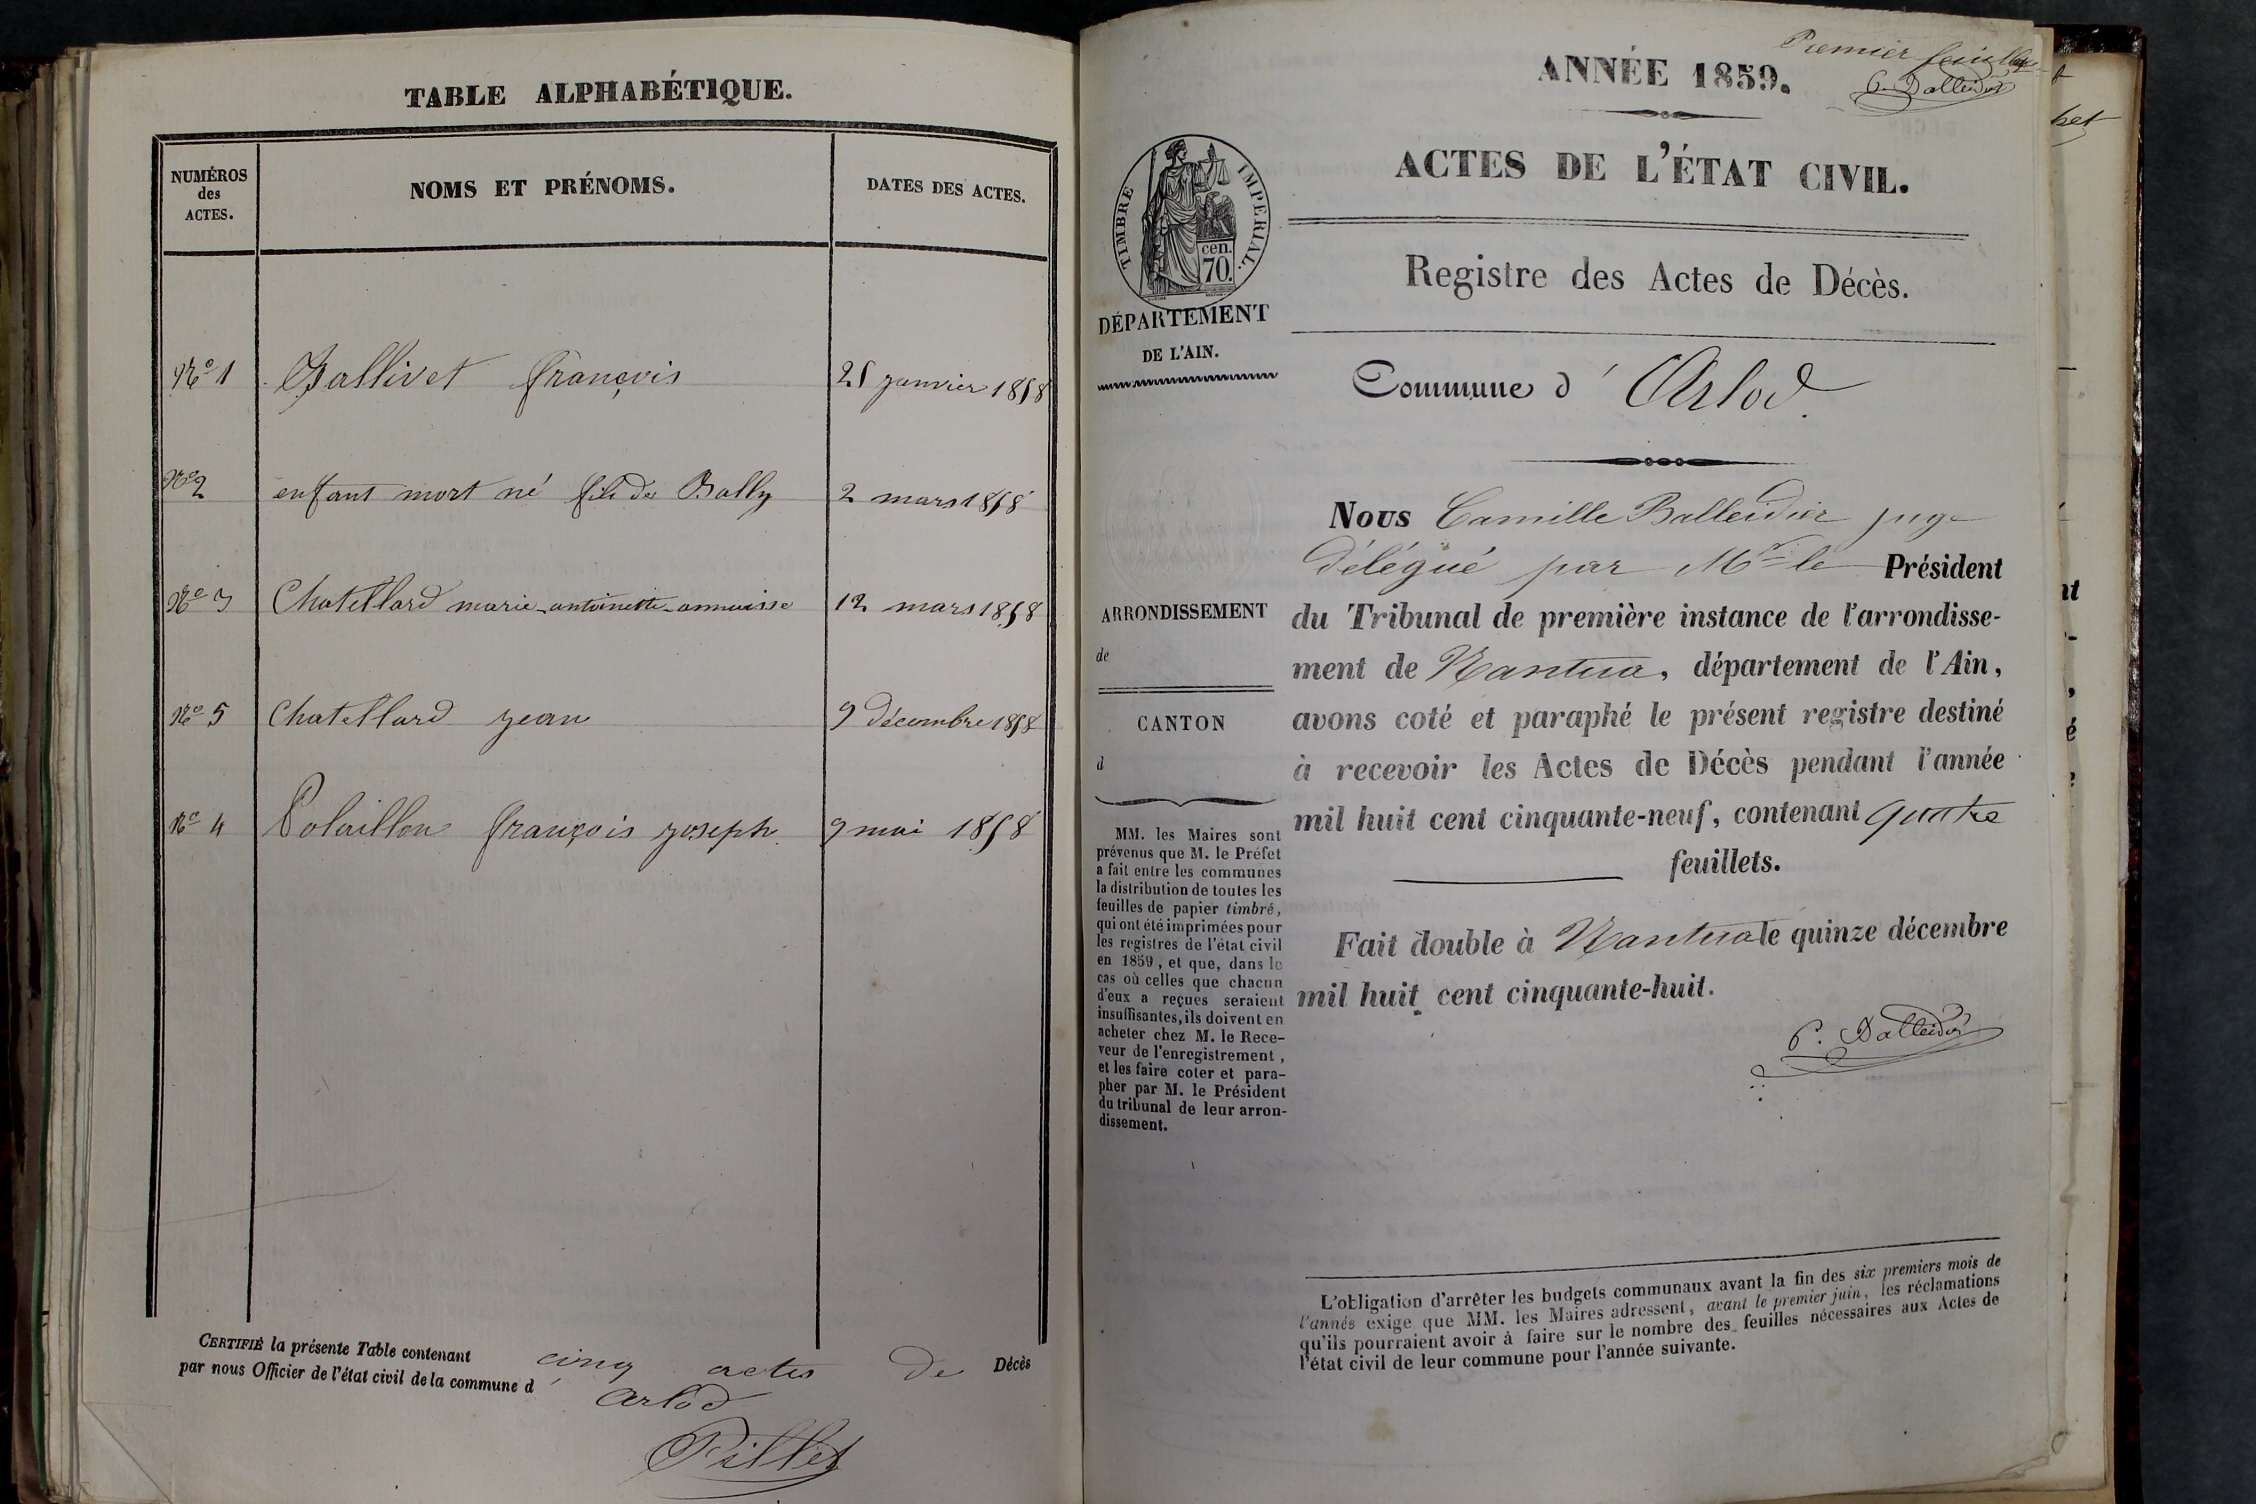 TABLE ALPHABÉTIQUE.
NUMÉROS
des
ACTES.
NOMS ET PRÉNOMS.
DATES DES ACTES.
No 1 Ballivet françois 25 janvier 1858
No 2 enfant mort né fils de Bally 2 mars 1858
No 3 Chatellard marie antoinette 12 mars 1858
No 5 Chatellard jean 9 décembre 1858
No 4 Polaillon françois joseph 9 mai 1858
CERTIFIÉ la présente Table contenant cinq actes de Décès
par nous Officier de l'état civil de la commune d'
Arlod
Pillet
Premier feuillet
C. Balleidier
ANNÉE 1859.
ACTES DE L'ÉTAT CIVIL.
TIMBRE IMPÉRIAL.
70 cen.
DÉPARTEMENT
DE L'AIN.
Registre des Actes de Décès.
Commune d'Arlod.
ARRONDISSEMENT
de
CANTON
d
MM. les Maires sont
prévenus que M. le Préfet
a fait entre les communes
la distribution de toutes les
feuilles de papier timbré,
qui ont été imprimées pour
les registres de l'état civil
en 1859, et que, dans le
cas où celles que chacun
d'eux a reçues seraient
insuffisantes, ils doivent en
acheter chez M. le Rece-
veur de l'enregistrement,
et les faire coter et para-
pher par M. le Président
du tribunal de leur arron-
dissement.
Nous Camille Balleidier juge
délégué par Mr le Président
du Tribunal de première instance de l'arrondisse-
ment de Nantua, département de l'Ain,
avons coté et paraphé le présent registre destiné
à recevoir les Actes de Décès pendant l'année
mil huit cent cinquante-neuf, contenant quatre
feuillets.
Fait double à Nantua le quinze décembre
mil huit cent cinquante-huit.
C. Balleidier
L'obligation d'arrêter les budgets communaux avant la fin des six premiers mois de
l'année exige que MM. les Maires adressent, avant le premier juin, les réclamations
qu'ils pourraient avoir à faire sur le nombre des feuilles nécessaires aux Actes de
l'état civil de leur commune pour l'année suivante.